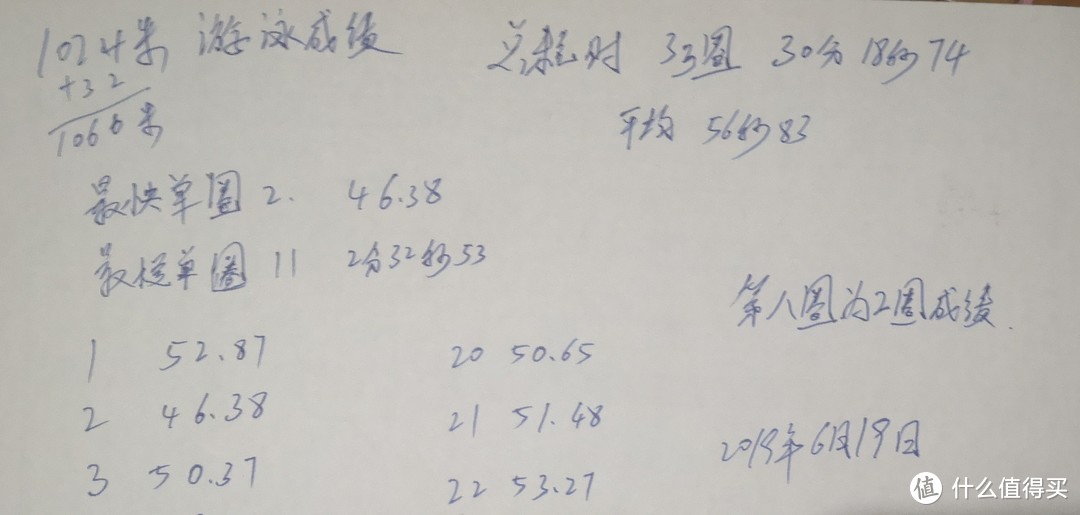 1024米 游泳成绩
+32
1066米
总耗时 33圈 30分18秒74
平均 56秒83
最快单圈 2. 46.38
最慢单圈 11 2分32秒53
第八圈为2圈成绩.
1 52.87
2 46.38
3 50.37
20 50.65
21 51.48
22 53.27
2019年6月19日
值 什么值得买